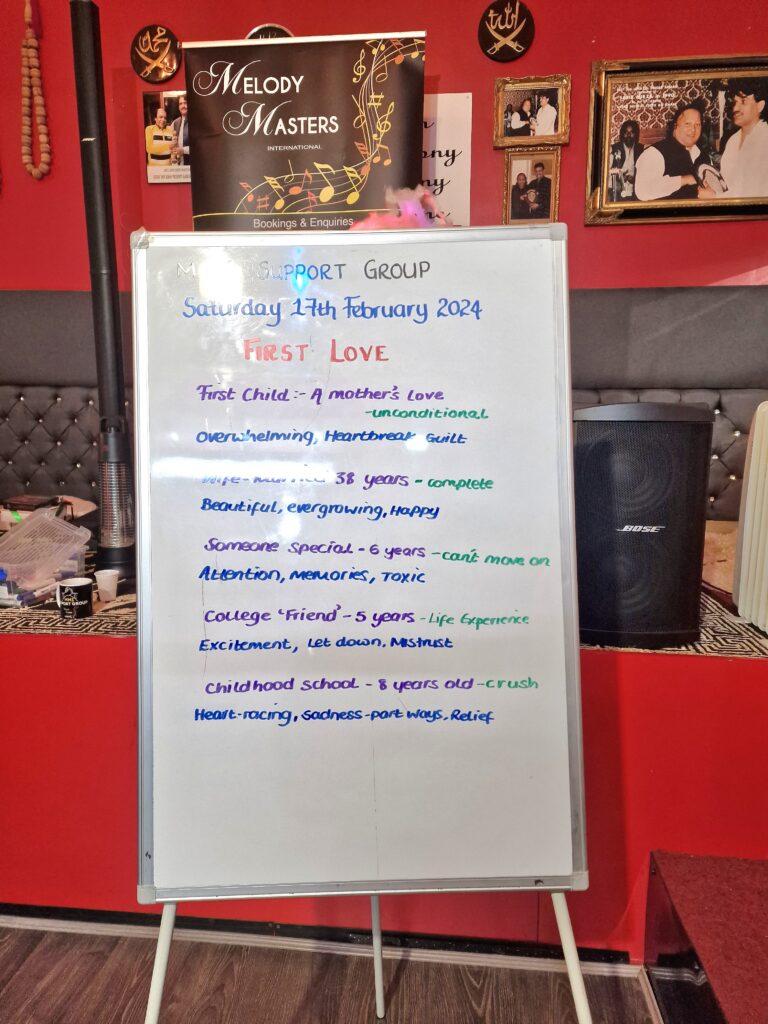 MELODY
MASTERS
INTERNATIONAL
Bookings & Enquiries
SUPPORT GROUP
Saturday 17th February 2024
FIRST LOVE
First Child :- A mother's Love
-unconditional
Overwhelming, Heartbreak, Guilt
Wife - Married 38 years - complete
Beautiful, evergrowing, Happy
Someone Special - 6 years - can't move on
Attention, memories, Toxic
College 'Friend' - 5 years - Life Experience
Excitement, Let down, Mistrust
Childhood school - 8 years old - crush
Heart-racing, Sadness-part ways, Relief
BOSE
PORT GROUP
محمد
الله